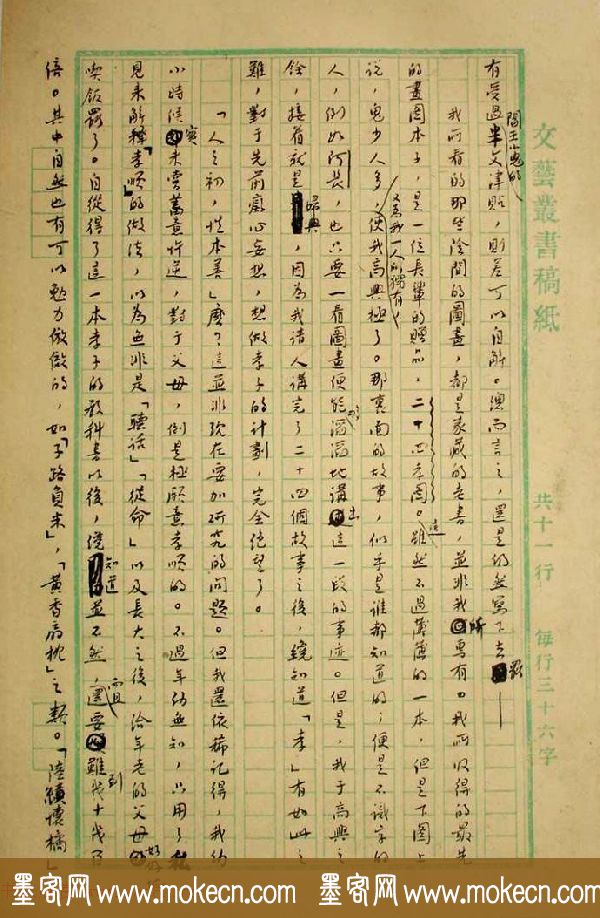 文藝叢書稿紙 共十一行 每行三十六字
有受過閻王小鬼的半文津貼，則差可以自解。總而言之，還是仍然寫下去罷——
我所看的那些陰間的圖畫，都是家藏的老書，並非我所專有。我所收得的最先
的畫圖本子，是一位長輩的贈品，二十四孝圖。這雖然不過薄薄的一本，但是下圖上
說，鬼少人多，又為我一人所獨有，使我高興極了。那裏面的故事，似乎是誰都知道的；便是不識字的
人，例如阿長，也只要一看圖畫便能夠滔滔地講出這一段的事迹。但是，我于高興之
餘，接着就是掃興，因為我請人講完了二十四個故事之後，纔知道「孝」有如此之
難，對于先前癡心妄想，想做孝子的計劃，完全絕望了。
「人之初，性本善」麼？這並非現在要加研究的問題。但我還依稀記得，我幼
小時候實未嘗蓄意忤逆，對于父母，倒是極願意孝順的。不過年幼無知，只用了私
見來解釋「孝順」的做法，以為無非是「聽話」「從命」，以及長大之後，給年老的父母好好
喫飯罷了。自從得了這一本孝子的教科書以後，纔知道並不然，而且還要難到幾十幾百
倍。其中自然也有可以勉力倣傚的，如「子路負米」，「黃香扇枕」之類。「陸績懷橘」
墨客网 www.mokecn.com 墨客网 www.mokecn.com